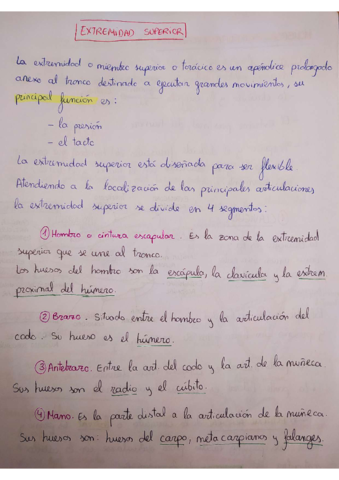 EXTREMIDAD SUPERIOR
La extremidad o miembro superior o torácico es un apéndice prolongado
anexo al tronco destinado a ejecutar grandes movimientos, su
principal función es:
- la presión
- el tacto
La extremidad superior está diseñada para ser flexible
Atendiendo a la localización de las principales articulaciones
la extremidad superior se divide en 4 segmentos:
① Hombro o cintura escapular. Es la zona de la extremidad
superior que se une al tronco.
Los huesos del hombro son la escápula, la clavícula y la extrem
proximal del húmero.
② Brazo. Situado entre el hombro y la articulación del
codo. Su hueso es el húmero.
③ Antebrazo. Entre la art. del codo y la art de la muñeca
Sus huesos son el radio y el cúbito.
④ Mano. Es la parte distal a la articulación de la muñeca.
Sus huesos son: huesos del carpo, metacarpianos y falanges.